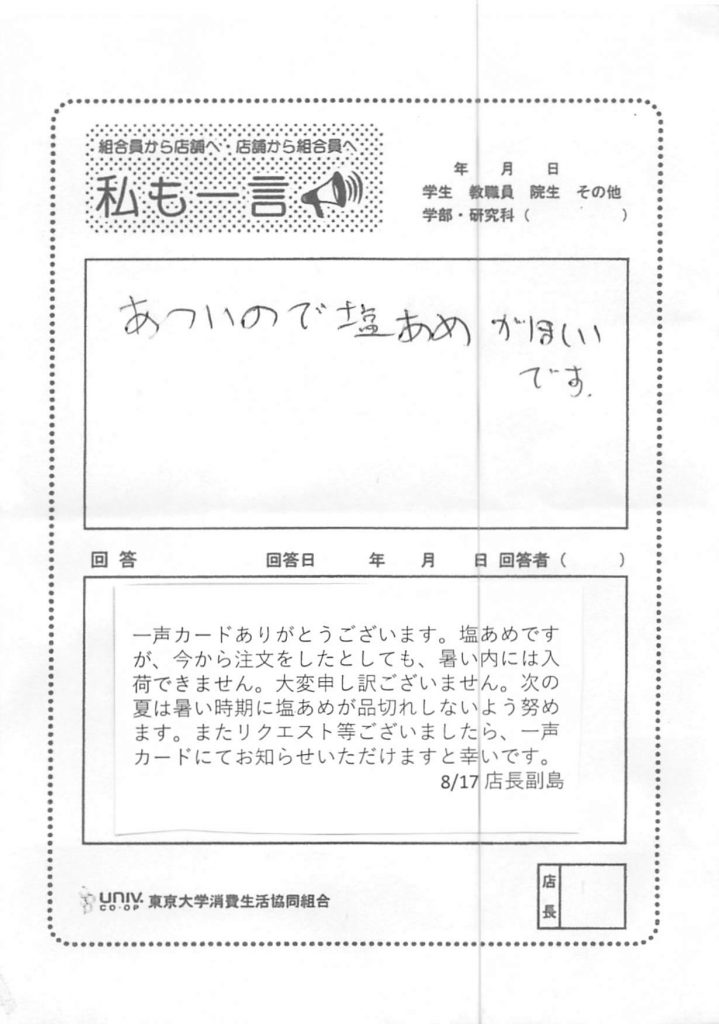 組合員から店舗へ・店舗から組合員へ
私も一言
年 月 日
学生 教職員 院生 その他
学部・研究科（ ）
あついので塩あめがほしい
です.
回答 回答日 年 月 日 回答者（ ）
一声カードありがとうございます。塩あめです
が、今から注文をしたとしても、暑い内には入
荷できません。大変申し訳ございません。次の
夏は暑い時期に塩あめが品切れしないよう努め
ます。またリクエスト等ございましたら、一声
カードにてお知らせいただけますと幸いです。
8/17 店長副島
店長
UNIV.
CO-OP
東京大学消費生活協同組合